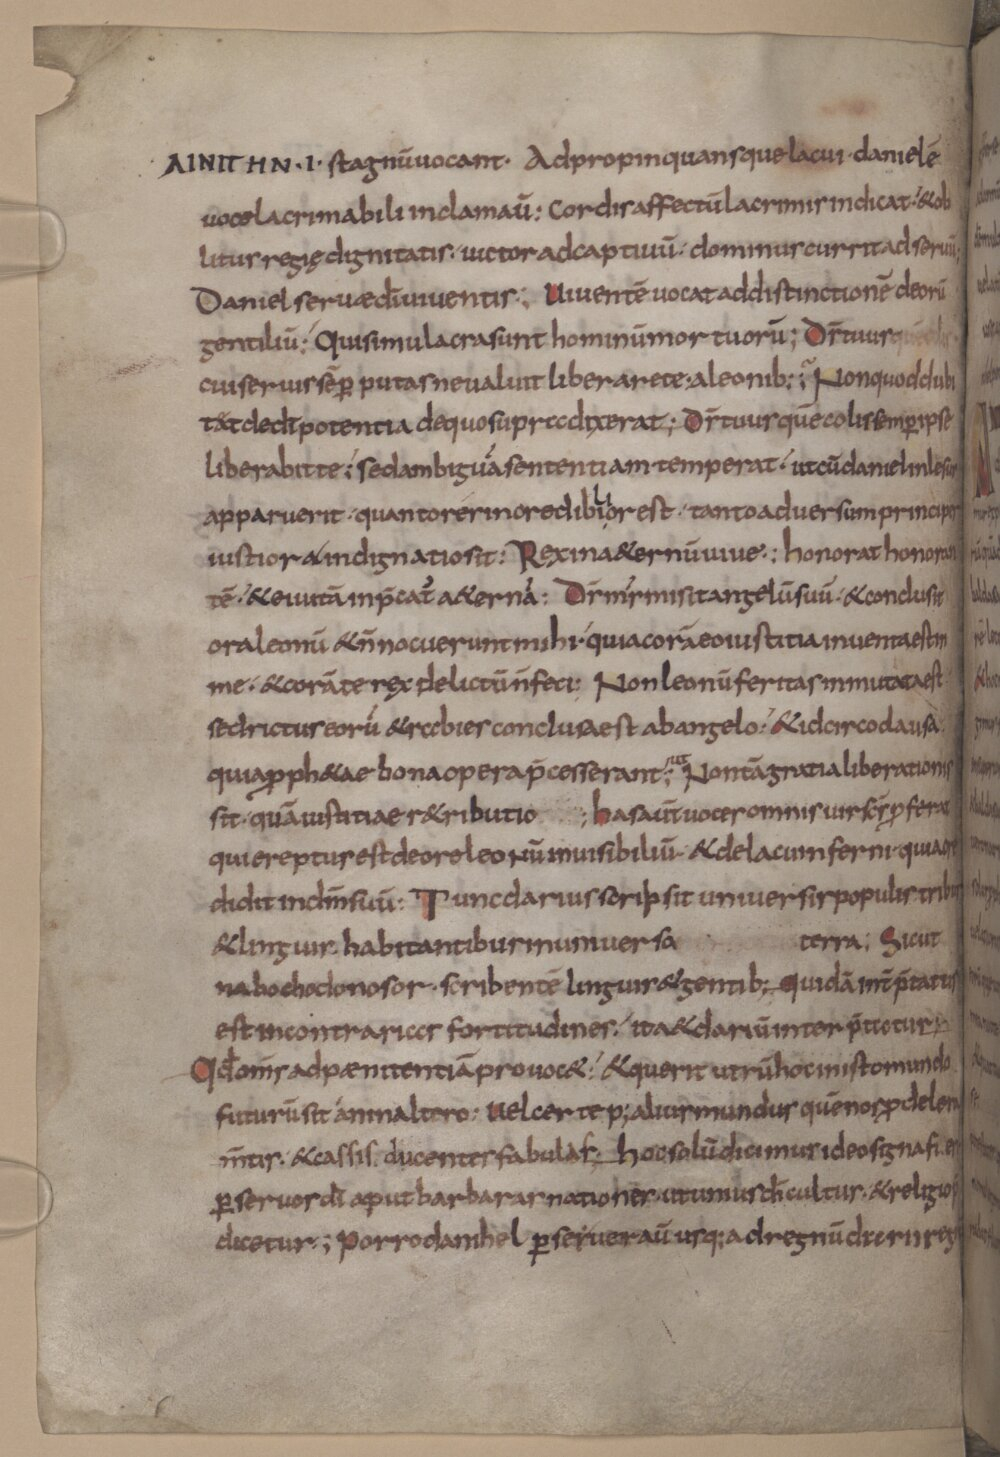 AINITHN·I· stagnũ vocant· Adpropinquansque lacui· danielẽ
voce lacrimabili inclamaũ: Cordis affectũ lacrimis indicat· &ob
litus regię dignitatis· victor ad captivũ· dominus currit ad servũ;
Daniel servæ dĩ viventis; Viventẽ vocat ad distinctionẽ deorũ
gentiliũ; Qui simulacra sunt hominũ mortuorũ; Dr̃ tuus
cui servis sẽp putasne valuit liberare te· a leonib:; Non quod dubi
tãt de dĩ potentia de quo supra dixerat; Dr̃ tuus quẽ colis semp ipse
liberabit te; sed ambiguã sententiam temperat· ut cũ daniel inlesus
apparuerit· quanto res incredibilior est· tanto adversum principes
iustior & indignatio sit: Rex in &ernũ vive·: honorat honoran
tẽ· & ei vitã in p̃cat̃ &ernã: Dr̃ mr̃ misit angelũ suũ· & conclusit
ora leonũ & ñ nocuerunt mihi· quia corã eo iustitia inventa est in
me· & corã te rex delictũ ñ feci: Non leonũ feritas inmutata est
sed rictus eorũ & rabies conclusa est ab angelo: & idcirco clausa
quia pph&ae bona opera p̃cesserant; Non tã gratia liberationis
sit· quã iustitiae r&ributio ; has aũt voces omnis vir scr̃ pferat
qui ereptus est de ore leonũ invisibiliũ· & de lacu inferni· quia cre
didit in dñ suũ: Tunc darius scripsit universis populis tribub
& linguis habitantibus in universa terra; Sicut
nabochodonosor· scribentẽ linguis & gentib; quidã int̃p̃tatus
est in contrarias fortitudines· ita & dariũ inter p̃tatur
Qd omis ad pænitentiã provoc&: & querit utrũ hoc in isto mundo
futurũ sit an in altero· vel certe p; alius mundus quẽ nos p delera
m̃tis· & cassis ducentes fabulas· hoc solũ dicimus ideo signa fieri
p servos dĩ aput barbaras nationes· ut unius dĩ cultus· & religio p
dicetur·; Porro danihel pseveraũ usq; ad regnũ darii reg